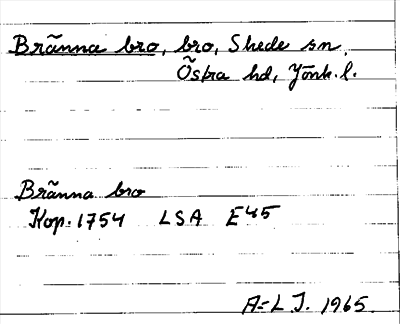 Bränna bro, bro, Skede sn,
Östra hd, Jönk. l.
Bränna bro
Kop. 1754 LSA E45
A-L J. 1965.